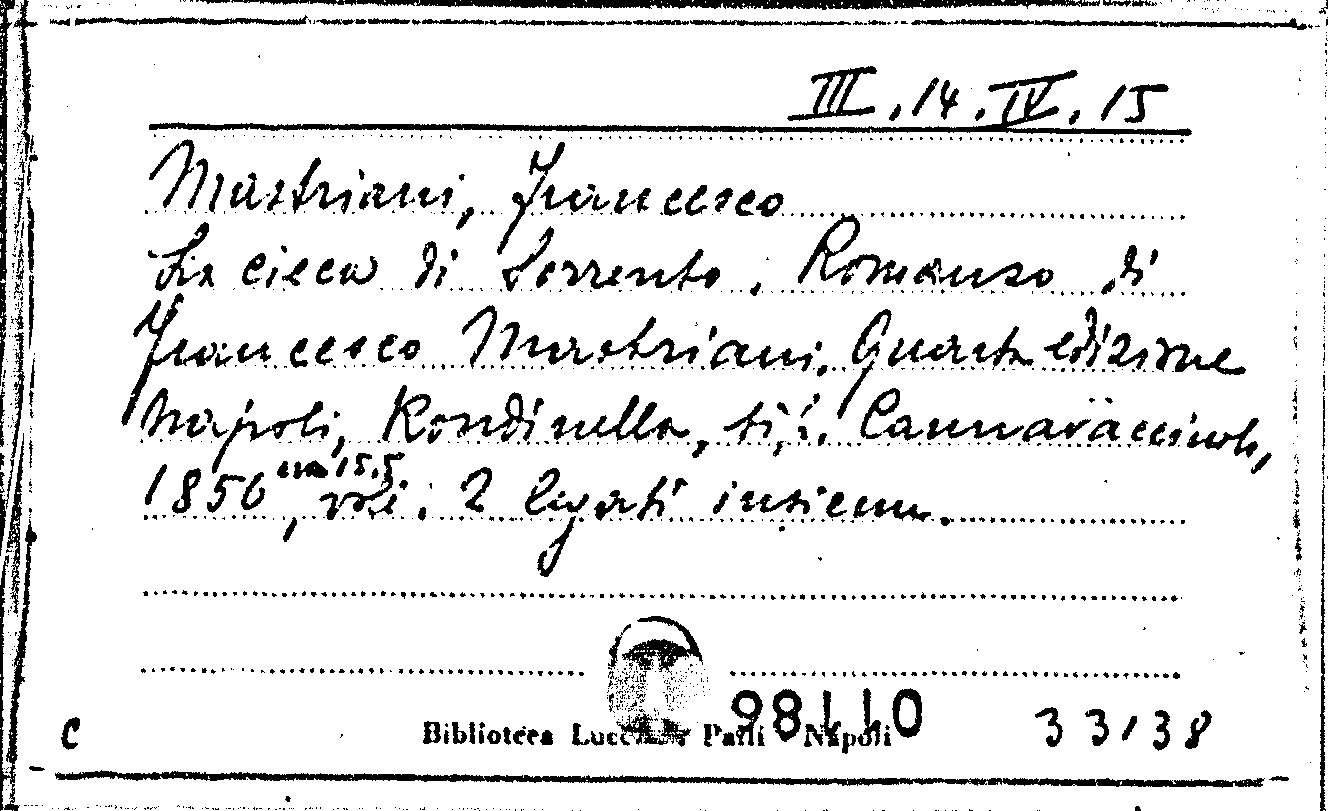 III.14.IV.15
Mastriani, Francesco
La cieca di Sorrento. Romanzo di
Francesco Mastriani. Quarta edizione
Napoli, Rondinella, ti, i. Cannavacciuoli,
1856 cm 15.5, voli. 2 legati insieme.
98110
c Biblioteca Lucchesi Palli Napoli 33138